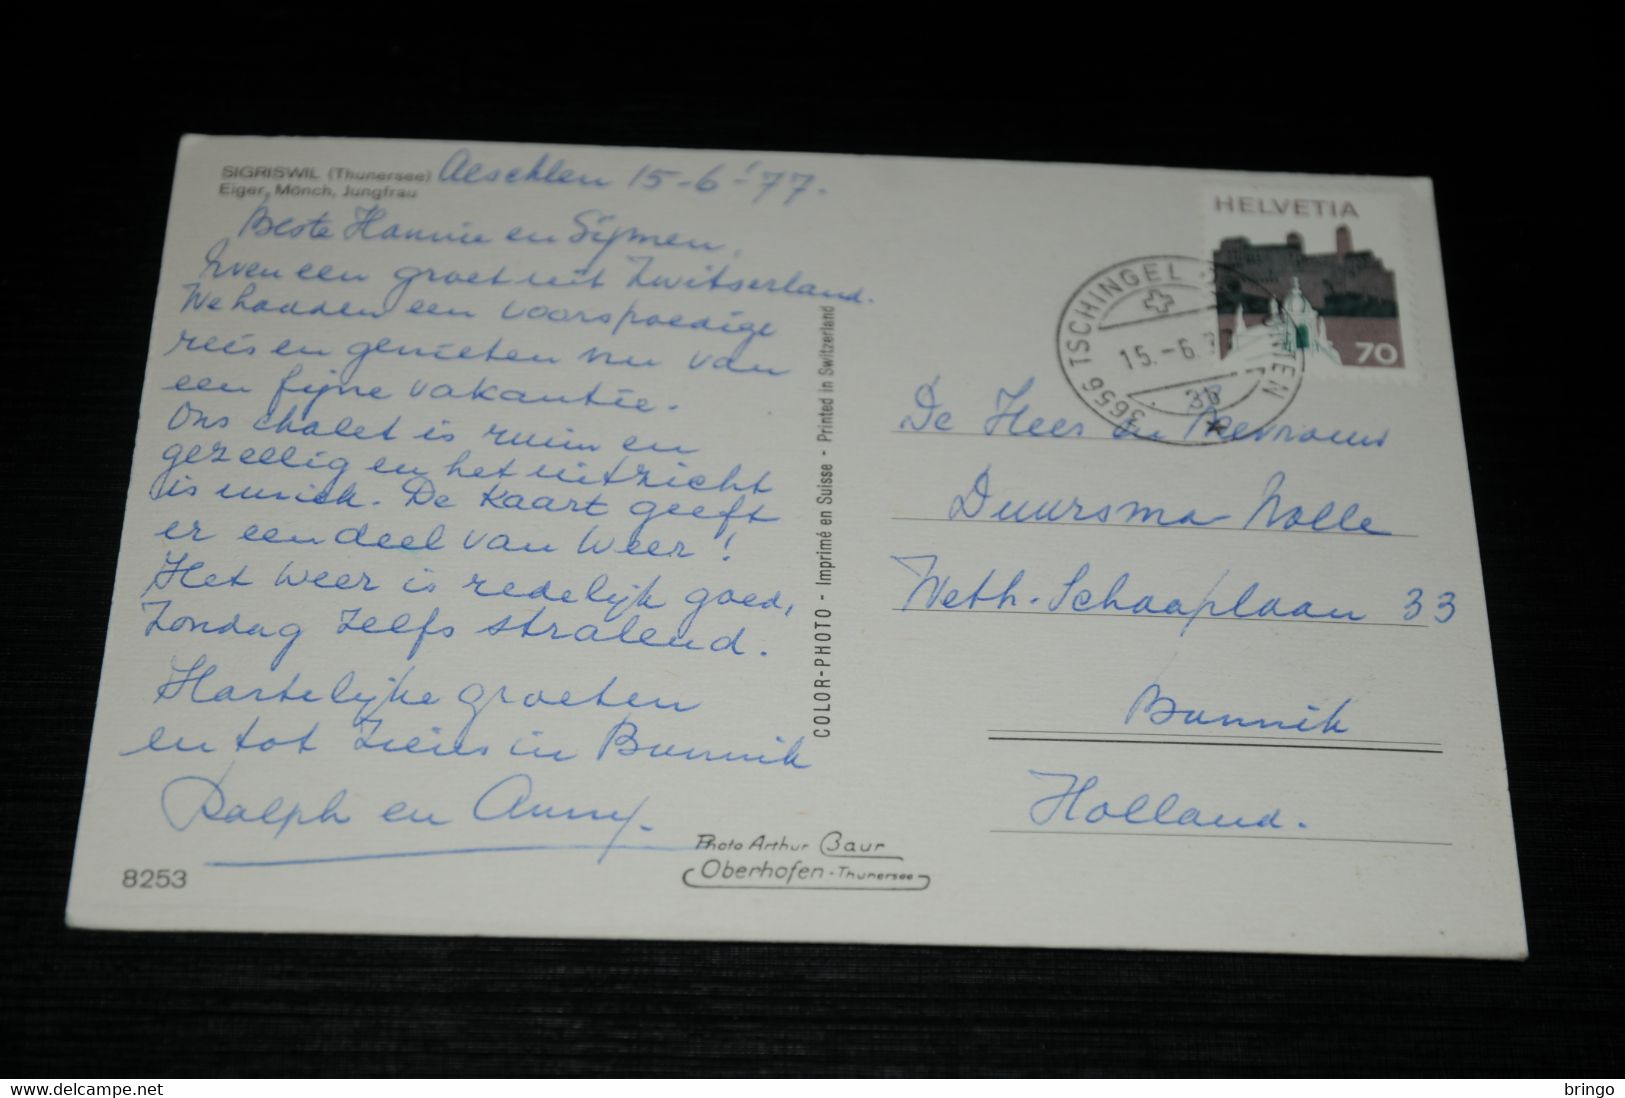 SIGRISWIL (Thunersee)
Eiger, Mönch, Jungfrau
Aeschlen 15-6-'77.
Beste Hannie en Sijmen,
Even een groet uit Zwitserland.
We hadden een voorspoedige
reis en genieten nu van
een fijne vakantie.
Ons chalet is ruim en
gezellig en het uitzicht
is uniek. De kaart geeft
er een deel van weer!
Het weer is redelijk goed,
Zondag zelfs stralend.
Hartelijke groeten
en tot ziens in Bunnik
Ralph en Anny.
8253
Photo Arthur Baur
Oberhofen - Thunersee
COLOR-PHOTO - Imprimé en Suisse - Printed in Switzerland
HELVETIA
70
3656 TSCHINGEL
15.-6.77
De Heer en Mevrouw
Duursma-Nolle
Weth. Schaaplaan 33
Bunnik
Holland.
bringo